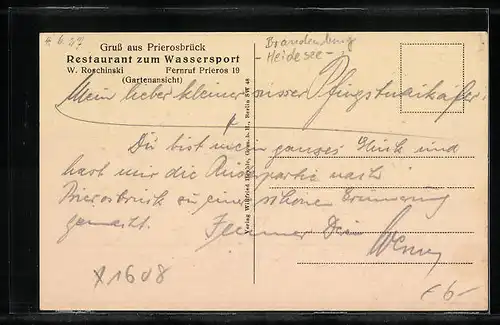 Gruß aus Prierosbrück
Restaurant zum Wassersport
W. Roschinski Fernruf Prieros 19
(Gartenansicht)
Brandenburg
Heidesee-
Mein lieber kleiner süsser Pfingstmaikäfer!
Du bist mein ganzes Glück und
hast mir die Ruderpartie nach
Prierosbrück zu einer schönen Erinnerung
gemacht. Immer Dein
Verlag Wilhelm G.m.b.H., Berlin SW 48
X1608
€6-